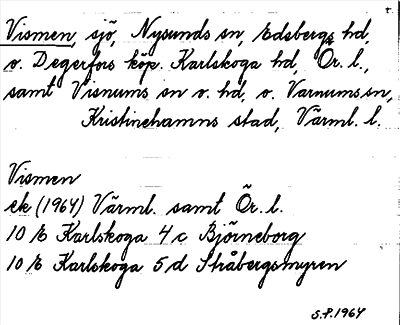 Vismen, sjö, Nysunds sn, Edsbergs hd,
o. Degerfors köp. Karlskoga hd, Ör. l.,
samt Visnums sn o. hd, o. Varnums sn,
Kristinehamns stad, Värml. l.
Vismen
ek (1964) Värml. samt Ör. l.
10 E Karlskoga 4 c Björneborg
10 E Karlskoga 5 d Stråbergsmyren
S.P. 1964